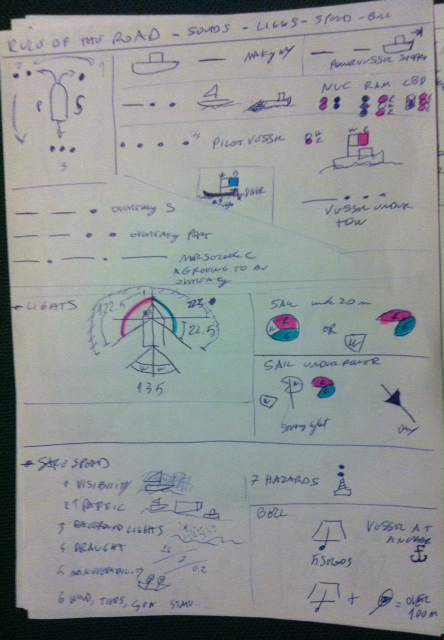 RULES OF THE ROAD - SOUNDS - LIGHTS - SPEED - BELL
1
P S
3
MAKING WAY
NUC RAM CBD
PILOT VESSEL
W
R
DIVER
VESSEL UNDER
TOW
OVERTAKING S
OVERTAKING PORT
AGREEING TO AN
OVERTAKING
LIGHTS
22.5
22.5
135
SAIL under 20 m
OR
SAIL UNDER POWER
Steaming light
Day
SAFE SPEED
1 VISIBILITY
2 TRAFFIC
3 BACKGROUND LIGHTS
4 DRAUGHT
5
0.2
6 WIND, TIDES, SEA STATE
7 HAZARDS
BELL
5 SECONDS
VESSEL AT
ANCHOR
+ = OVER
100 m